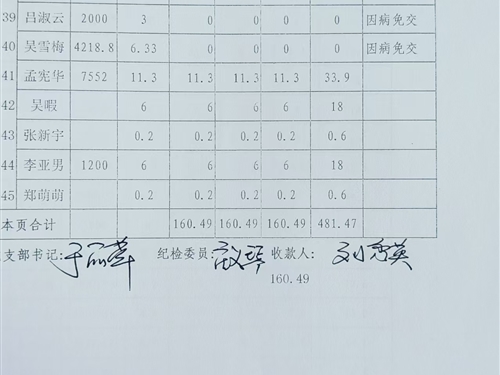 39 吕淑云 2000 3 0 0 0 0 因病免交
40 吴雪梅 4218.8 6.33 0 0 0 0 因病免交
41 孟宪华 7552 11.3 11.3 11.3 11.3 33.9
42 吴暇 6 6 6 6 18
43 张新宇 0.2 0.2 0.2 0.2 0.6
44 李亚男 1200 6 6 6 6 18
45 郑萌萌 0.2 0.2 0.2 0.2 0.6
本页合计 160.49 160.49 160.49 481.47
支部书记: 纪检委员: 收款人: 刘秀英
160.49